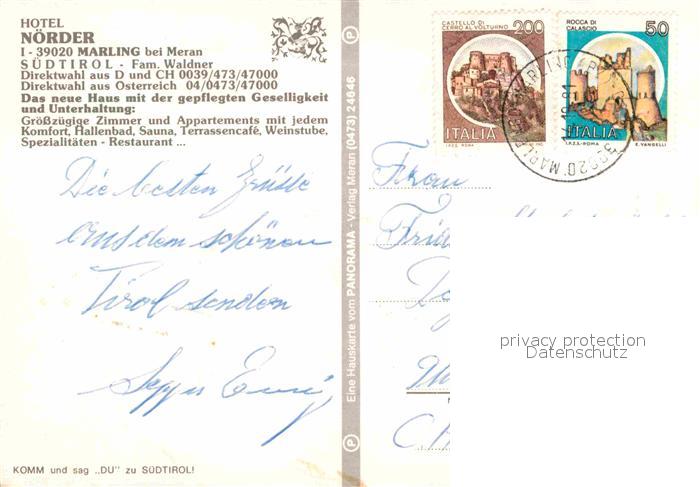 HOTEL
NÖRDER
I - 39020 MARLING bei Meran
SÜDTIROL - Fam. Waldner
Direktwahl aus D und CH 0039/473/47000
Direktwahl aus Österreich 04/0473/47000
Das neue Haus mit der gepflegten Geselligkeit
und Unterhaltung:
Großzügige Zimmer und Appartements mit jedem
Komfort, Hallenbad, Sauna, Terrassencafé, Weinstube,
Spezialitäten - Restaurant ...
Die besten Grüße
aus dem schönen
Tirol senden
KOMM und sag „DU" zu SÜDTIROL!
Eine Hauskarte vom PANORAMA - Verlag Meran (0473) 24646
CASTELLO DI
CERRO AL VOLTURNO
200
ITALIA
I.P.Z.S. ROMA
ROCCA DI
CALASCIO
50
ITALIA
I.P.Z.S. - ROMA
E. VANGELLI
39020 MARL
Frau
privacy protection
Datenschutz